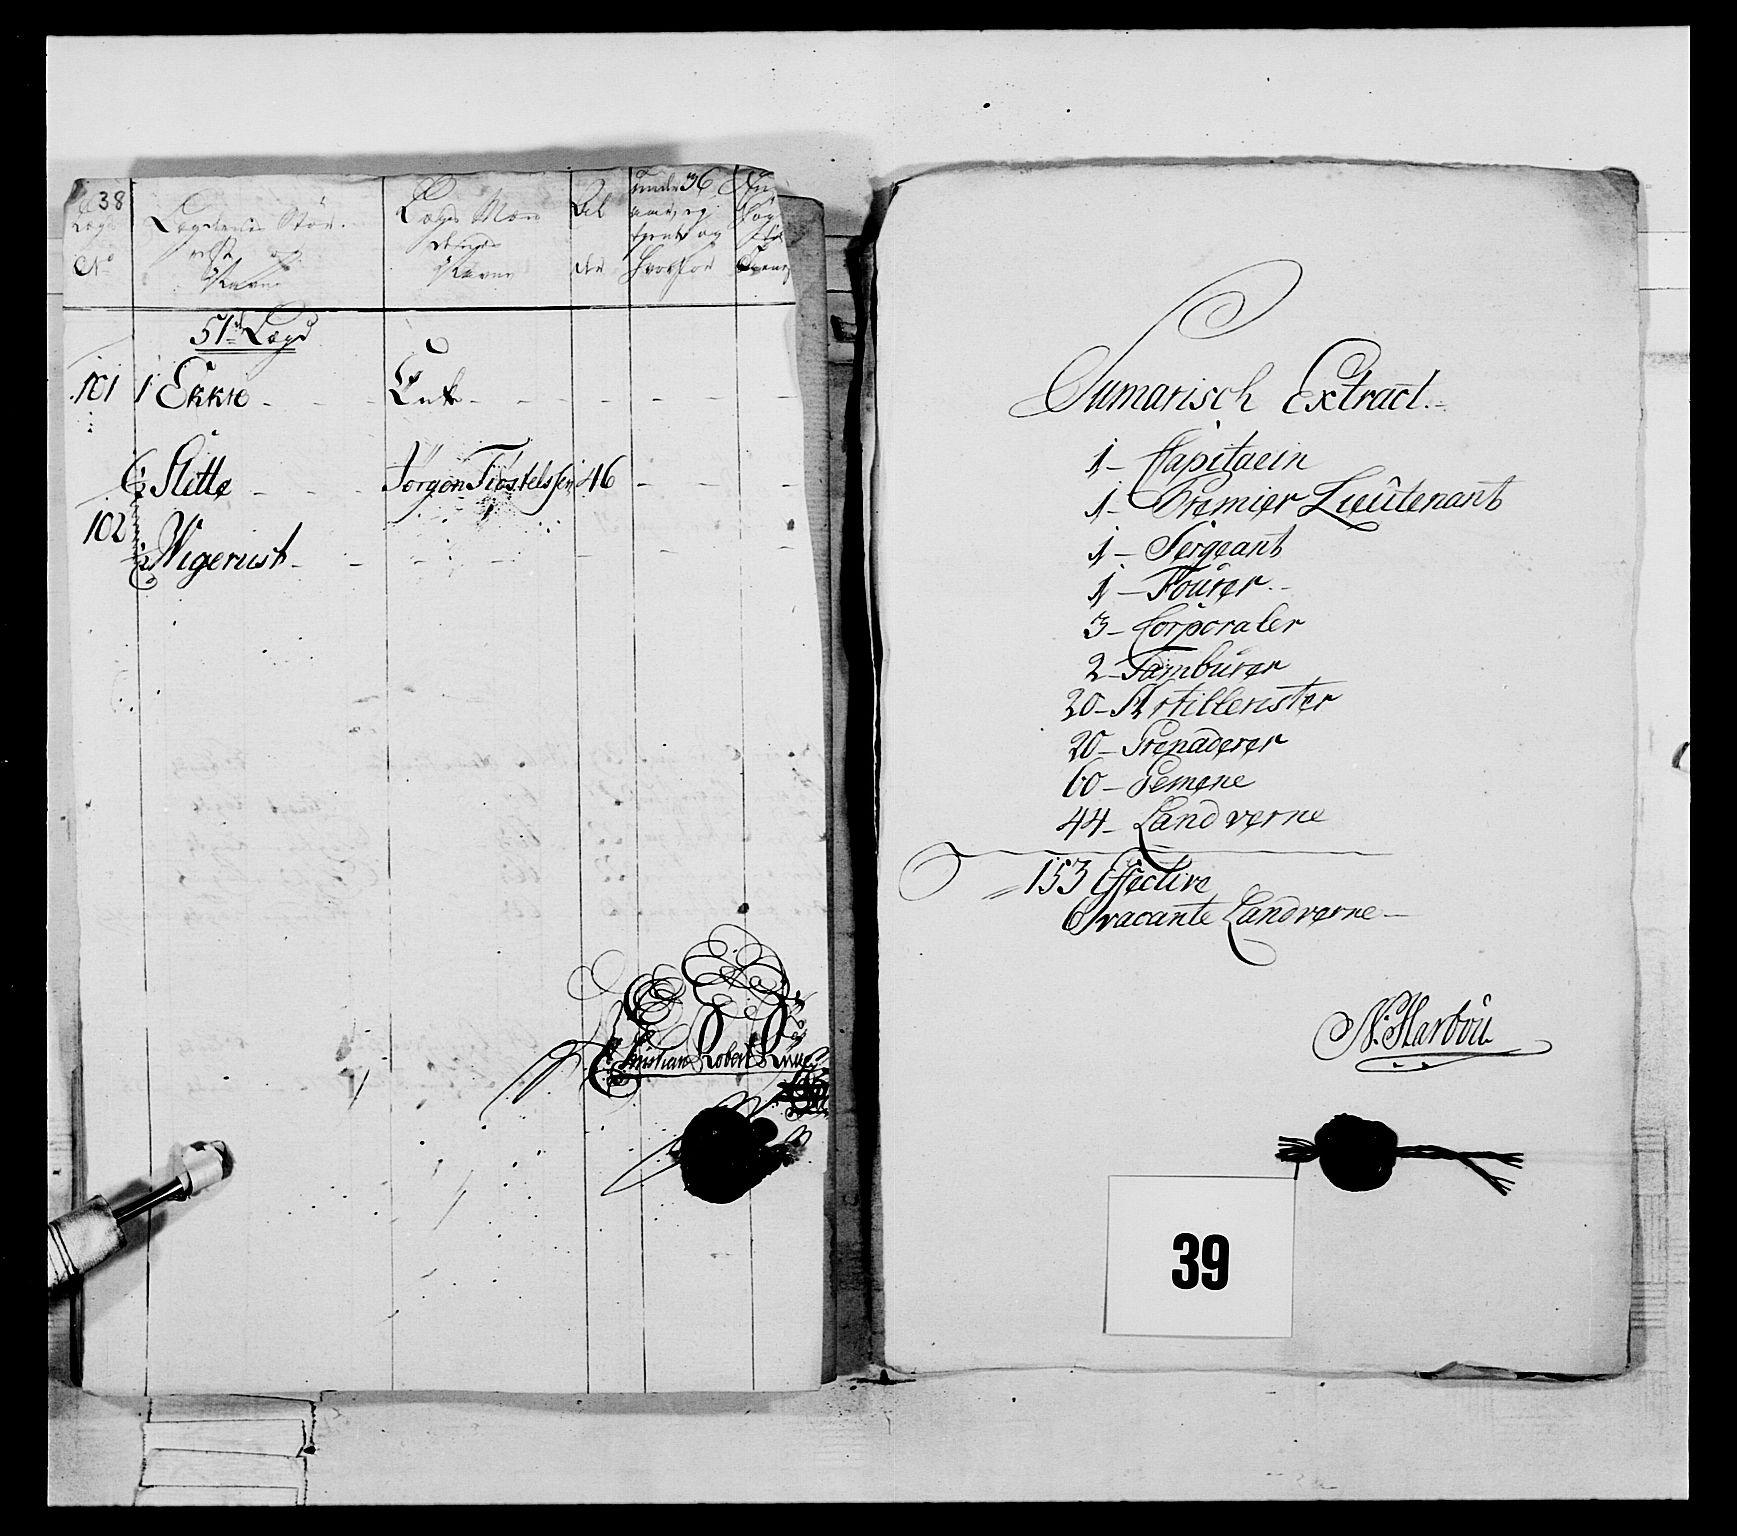 38
Lægd
No
Lægdernes Stør-
relse og
Navne
Lægds Mæn
denes
Navne
Al
der
under 36
aar, og
hvorfor
51de Lægd
101 1 Ekkre - - - Enk - - - - - -
1/2 Slitte - - - Jørgen Tiostelssen 46 - - -
102
1/2 Wigerust - - - - - - - -
Christian Robert Krug
Sumarisch Extract.
1 - Capitaein
1 - Premier Lieütenant
1 - Sergeant
1 - Foürer -
3 - Corporaler
2 - Tambürer
20 - Artillerister
20 - Grenaderer
60 - Gemene
44 - Landverne
153 Effective
6 vacante Landverne -
N: Harboü
39